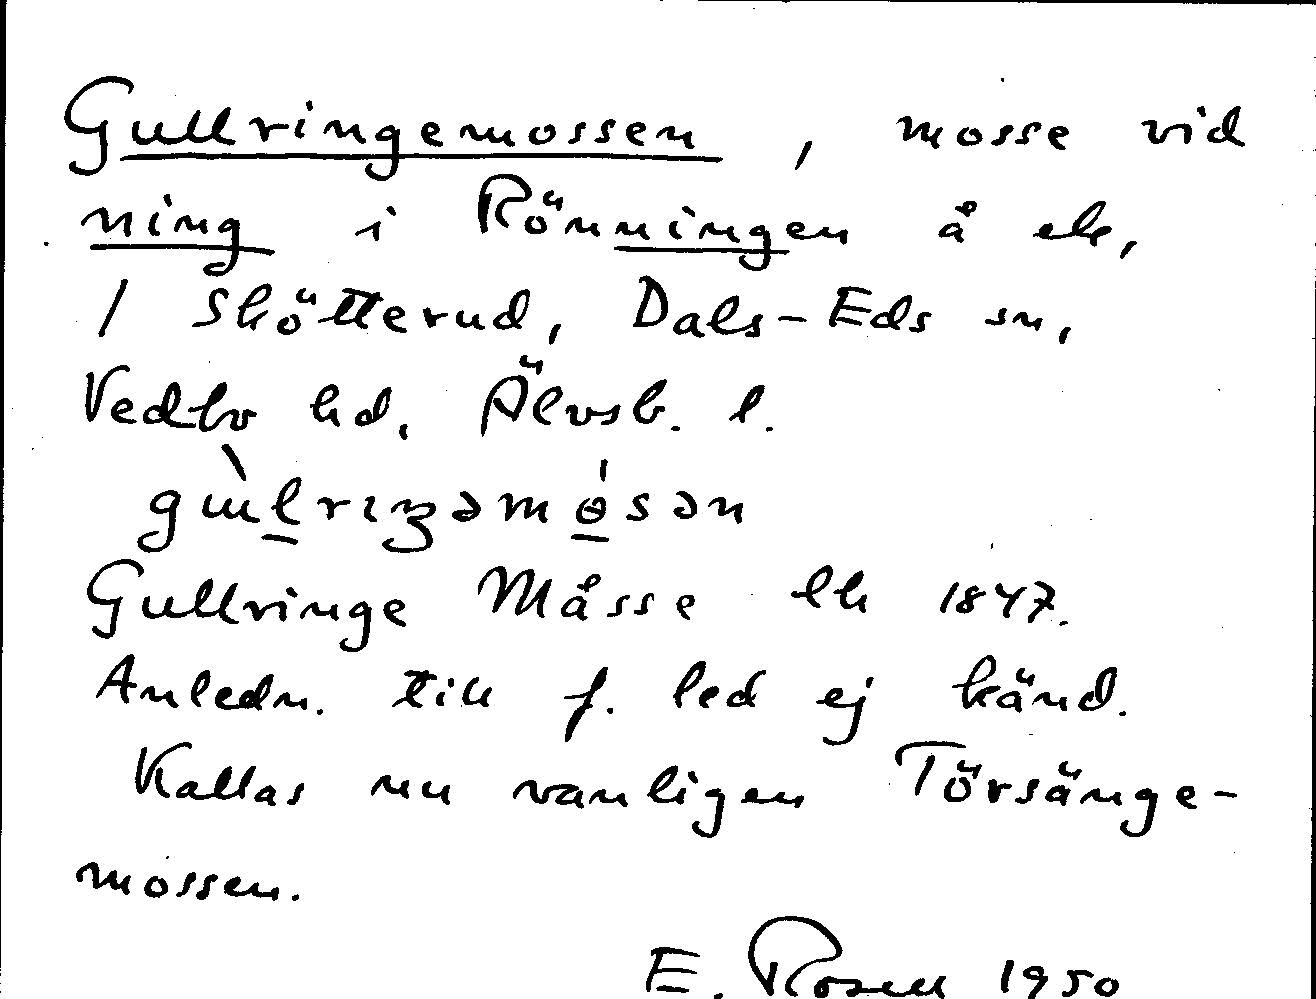 Gullringemossen, mosse vid
ning i Rönningen å ek,
1 Skötterud, Dals-Eds sn,
Vedbo hd, Älvsb. l.
Gullringe Måsse lh 1847.
Anledn. till f. led ej känd.
Kallas nu vanligen Törsänge-
mossen.
E. Rosell 1950